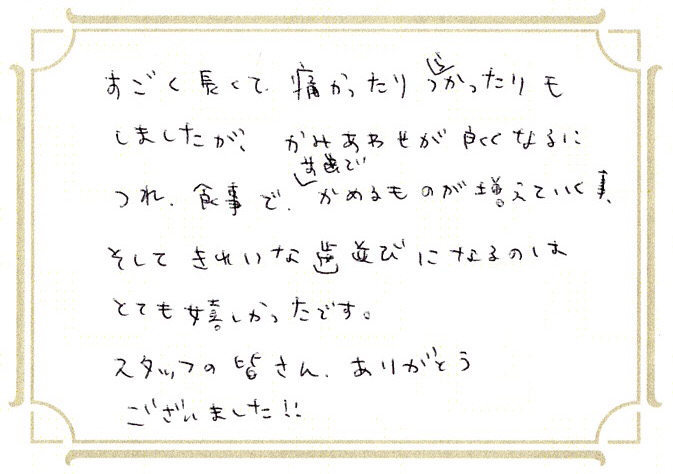 すごく長くて、痛かったりつらかったりも
しましたが、かみあわせが良くなるに
つれ、食事で、前歯でかめるものが増えていく事、
そしてきれいな歯並びになるのは
とても嬉しかったです。
スタッフの皆さん、ありがとう
ございました!!